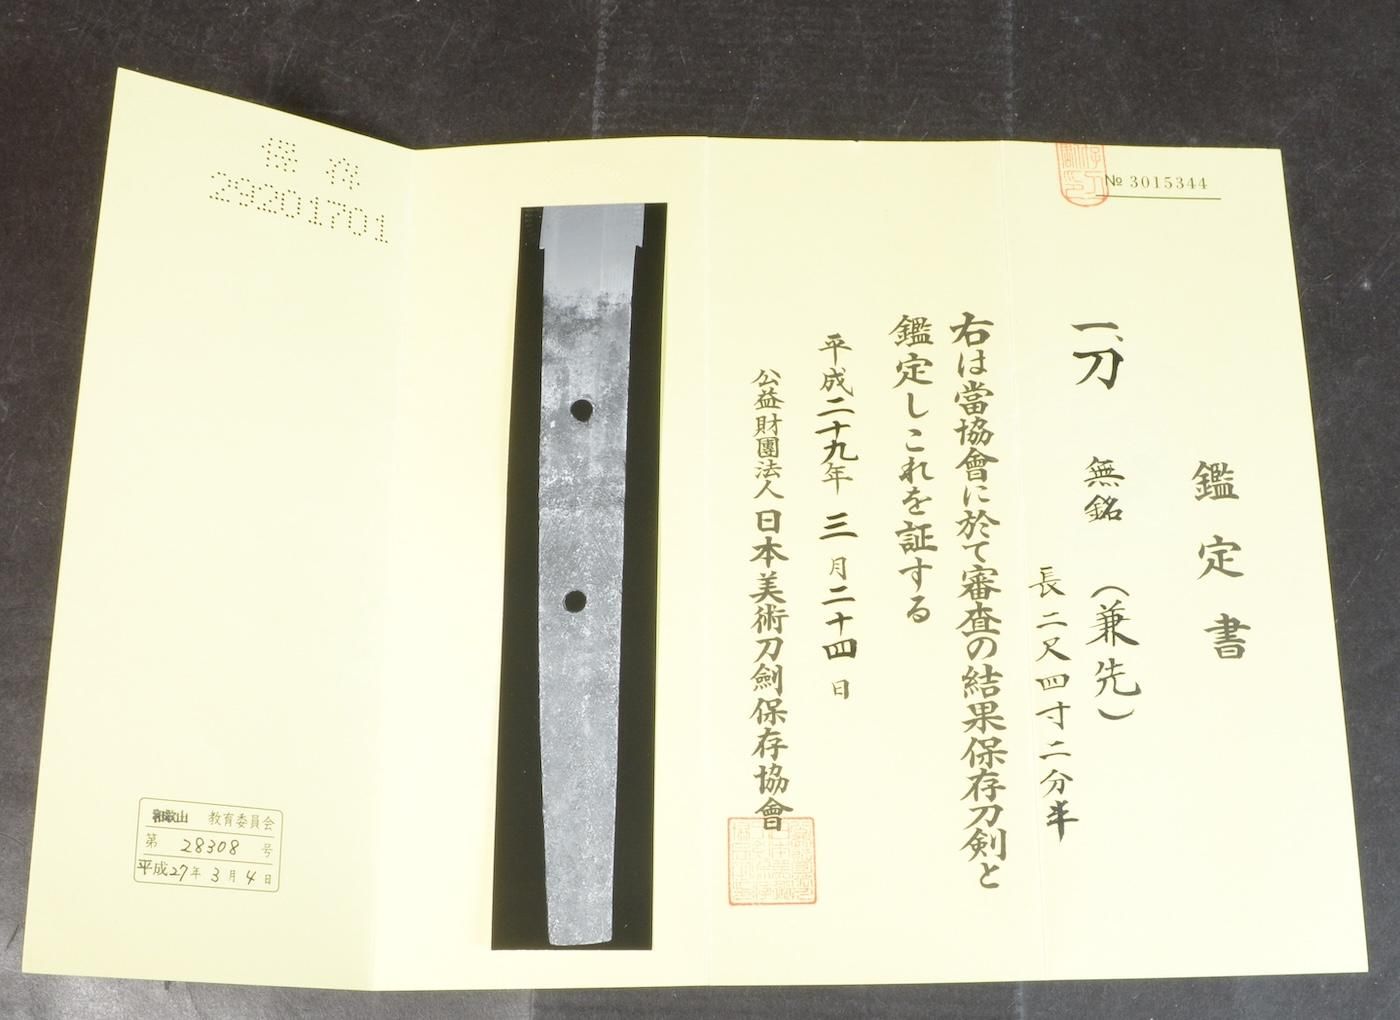 № 3015344
鑑定書
一、刀 無銘 (兼先)
長二尺四寸二分半
右は當協會に於て審査の結果保存刀剣と
鑑定しこれを証する
平成二十九年三月二十四日
公益財團法人日本美術刀劍保存協會
保存
29201701
和歌山 教育委員会
第 28308 号
平成27年3月4日